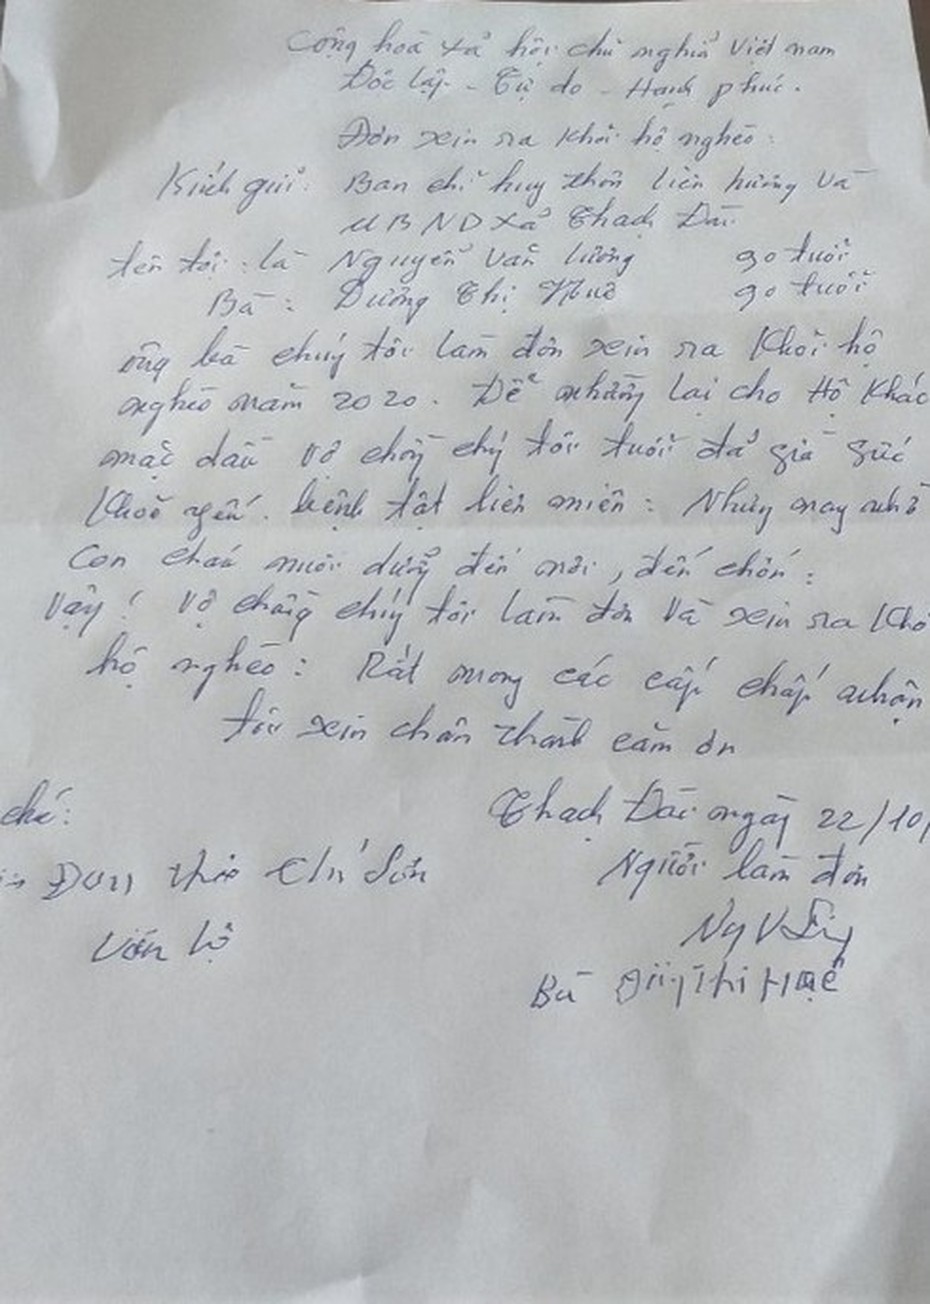 Cộng hoà xả hội chủ nghỉa Việt nam
Độc lập - Tự do - Hạnh phúc.
Đơn xin ra khỏi hộ nghèo:
Kính gửi: Ban chỉ huy thôn liên hương Và
UBND xả Thạch Đài
tên tôi: là Nguyễn Văn lương 90 tuổi
Bà: Dương Thị Huê 90 tuổi
ông bà chúng tôi làm đơn xin ra Khỏi hộ
nghèo năm 2020. Để nhường lại cho Hộ Khác
mặc dầu vợ chồng chúng tôi tuổi đả già sức
Khoẻ yếu. bệnh tật liên miên: Nhưng may nhờ
con cháu nuôi dưỡng đến nơi, đến chốn:
Vậy! Vợ chồng chúng tôi làm đơn Và xin ra Khỏ
hộ nghèo: Rất mong các cấp chấp nhận
tôi xin chân thành cảm ơn
chú: Thạch Đài ngày 22/10/
Đơn Người làm đơn
Bà Thị Huê